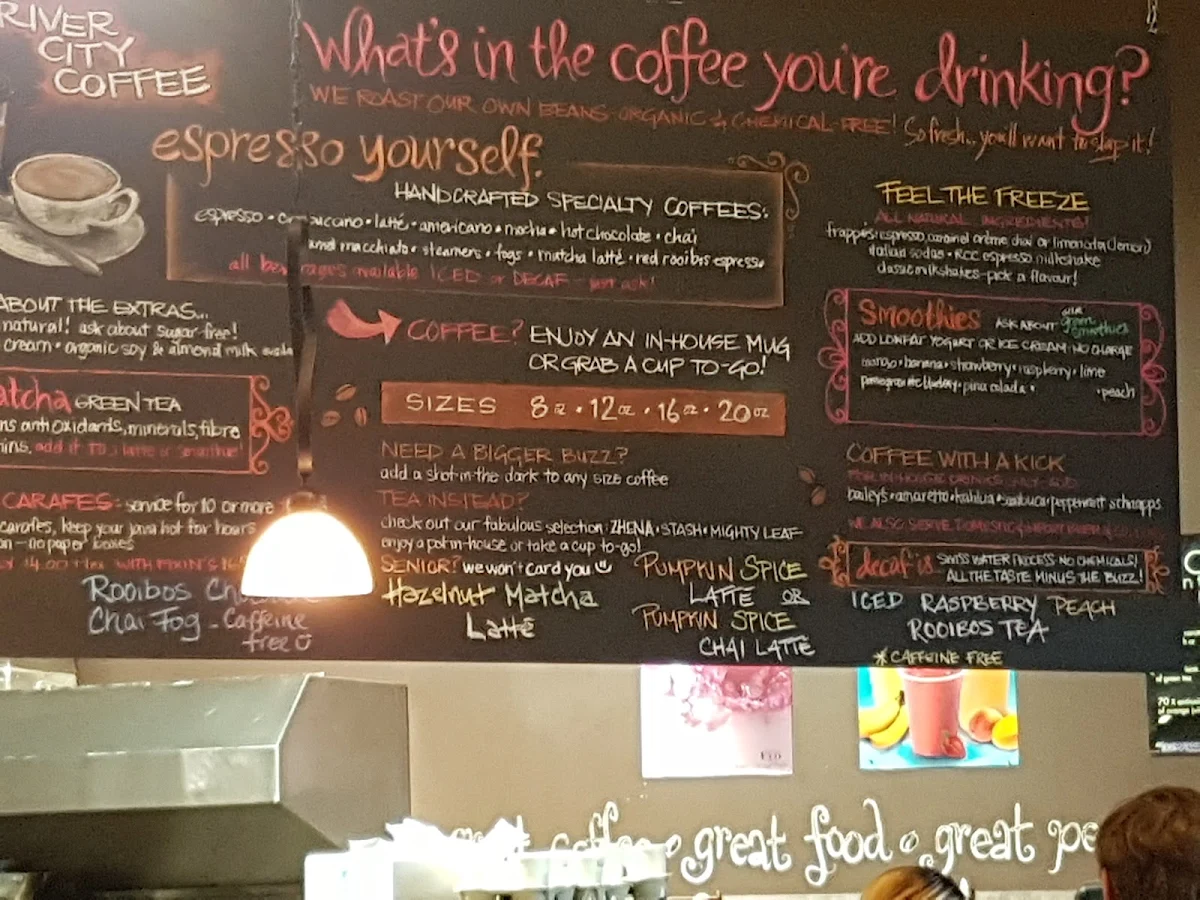 RIVER
CITY
COFFEE
What's in the coffee you're drinking?
WE ROAST OUR OWN BEANS·ORGANIC & CHEMICAL-FREE! So fresh.. you'll want to slap it!
espresso yourself.
HANDCRAFTED SPECIALTY COFFEES:
espresso • latté • americano • mocha • hot chocolate • chai
and macchiato • steamers • fogs • matcha latté • red rooibos espresso
all available ICED or DECAF - just ask!
ABOUT THE EXTRAS...
natural! ask about sugar-free!
cream • organic soy & almond milk
GREEN TEA
antioxidants, minerals, fibre
add it to a latté or smoothie!
CARAFES: service for 10 or more
carafes, keep your java hot for hours
no paper boxes
Rooibos
Chai Fog - Caffeine
free
COFFEE? ENJOY AN IN-HOUSE MUG
OR GRAB A CUP TO-GO!
SIZES 8oz • 12oz • 16oz • 20oz
NEED A BIGGER BUZZ?
add a shot-in-the dark to any size coffee
TEA INSTEAD?
check out our fabulous selection: ZHENA • STASH • MIGHTY LEAF
enjoy a pot in-house or take a cup to-go!
SENIOR? we won't card you
Hazelnut Matcha
Latté
PUMPKIN SPICE
LATTE OR
PUMPKIN SPICE
CHAI LATTE
FEEL THE FREEZE
ALL NATURAL INGREDIENTS!
frappés: espresso, caramel crème, chai or limonata (lemon)
italian sodas • RCC espresso milkshake
classic milkshakes - pick a flavour!
Smoothies ASK ABOUT our green smoothies
ADD LOWFAT YOGURT OR ICE CREAM · NO CHARGE
mango • banana • strawberry • raspberry • lime
pomegranate blueberry • pina colada • • peach
COFFEE WITH A KICK
bailey's • amaretto • kahlua • sambuca • peppermint schnapps
WE ALSO SERVE DOMESTIC & IMPORT BEER
decaf is SWISS WATER PROCESS · NO CHEMICALS!
ALL THE TASTE MINUS THE BUZZ!
ICED RASPBERRY PEACH
ROOIBOS TEA
* CAFFEINE FREE
coffee great food great